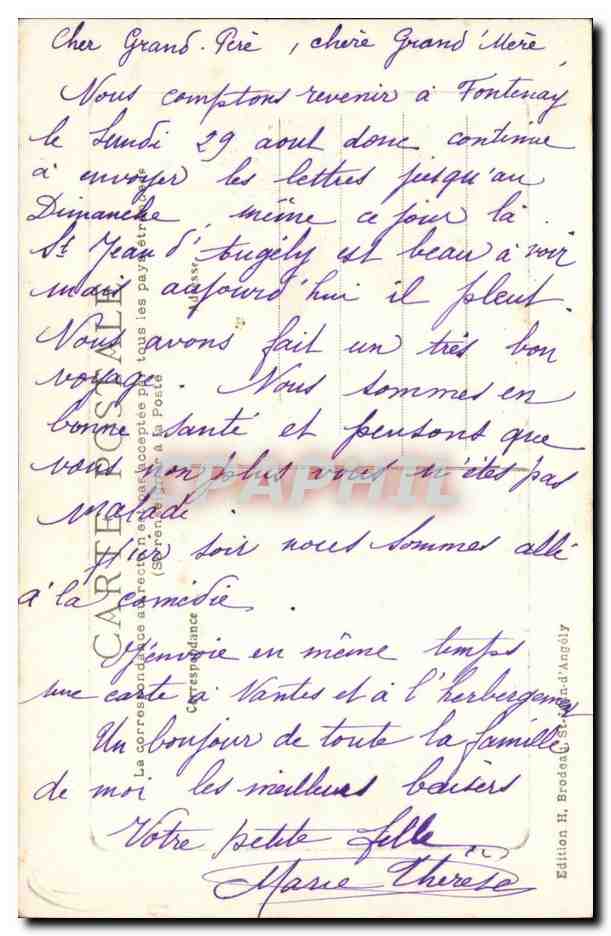 Cher Grand-Père, chère Grand'Mère
Nous comptons revenir à Fontenay
le Lundi 29 aout donc continue
à envoyer les lettres jusqu'au
Dimanche même ce jour là.
St Jean d'Angély est beau à voir
mais aujourd'hui il pleut.
Nous avons fait un très bon
voyage. Nous sommes en
bonne santé et pensons que
vous non plus vous n'êtes pas
malade.
Hier soir nous sommes allé
à la comédie
J'envoie en même temps
une carte à Nantes et à l'herbergement
Un bonjour de toute la famille
de moi les meilleurs baisers
Votre petite fille
Marie Thérèse
CARTE POSTALE
La correspondance au recto n'est pas acceptée par tous les pays étrangers
(Se renseigner à la Poste)
Correspondance
Adresse
Edition H. Brodeau, St-Jean-d'Angély
CPAPHIL